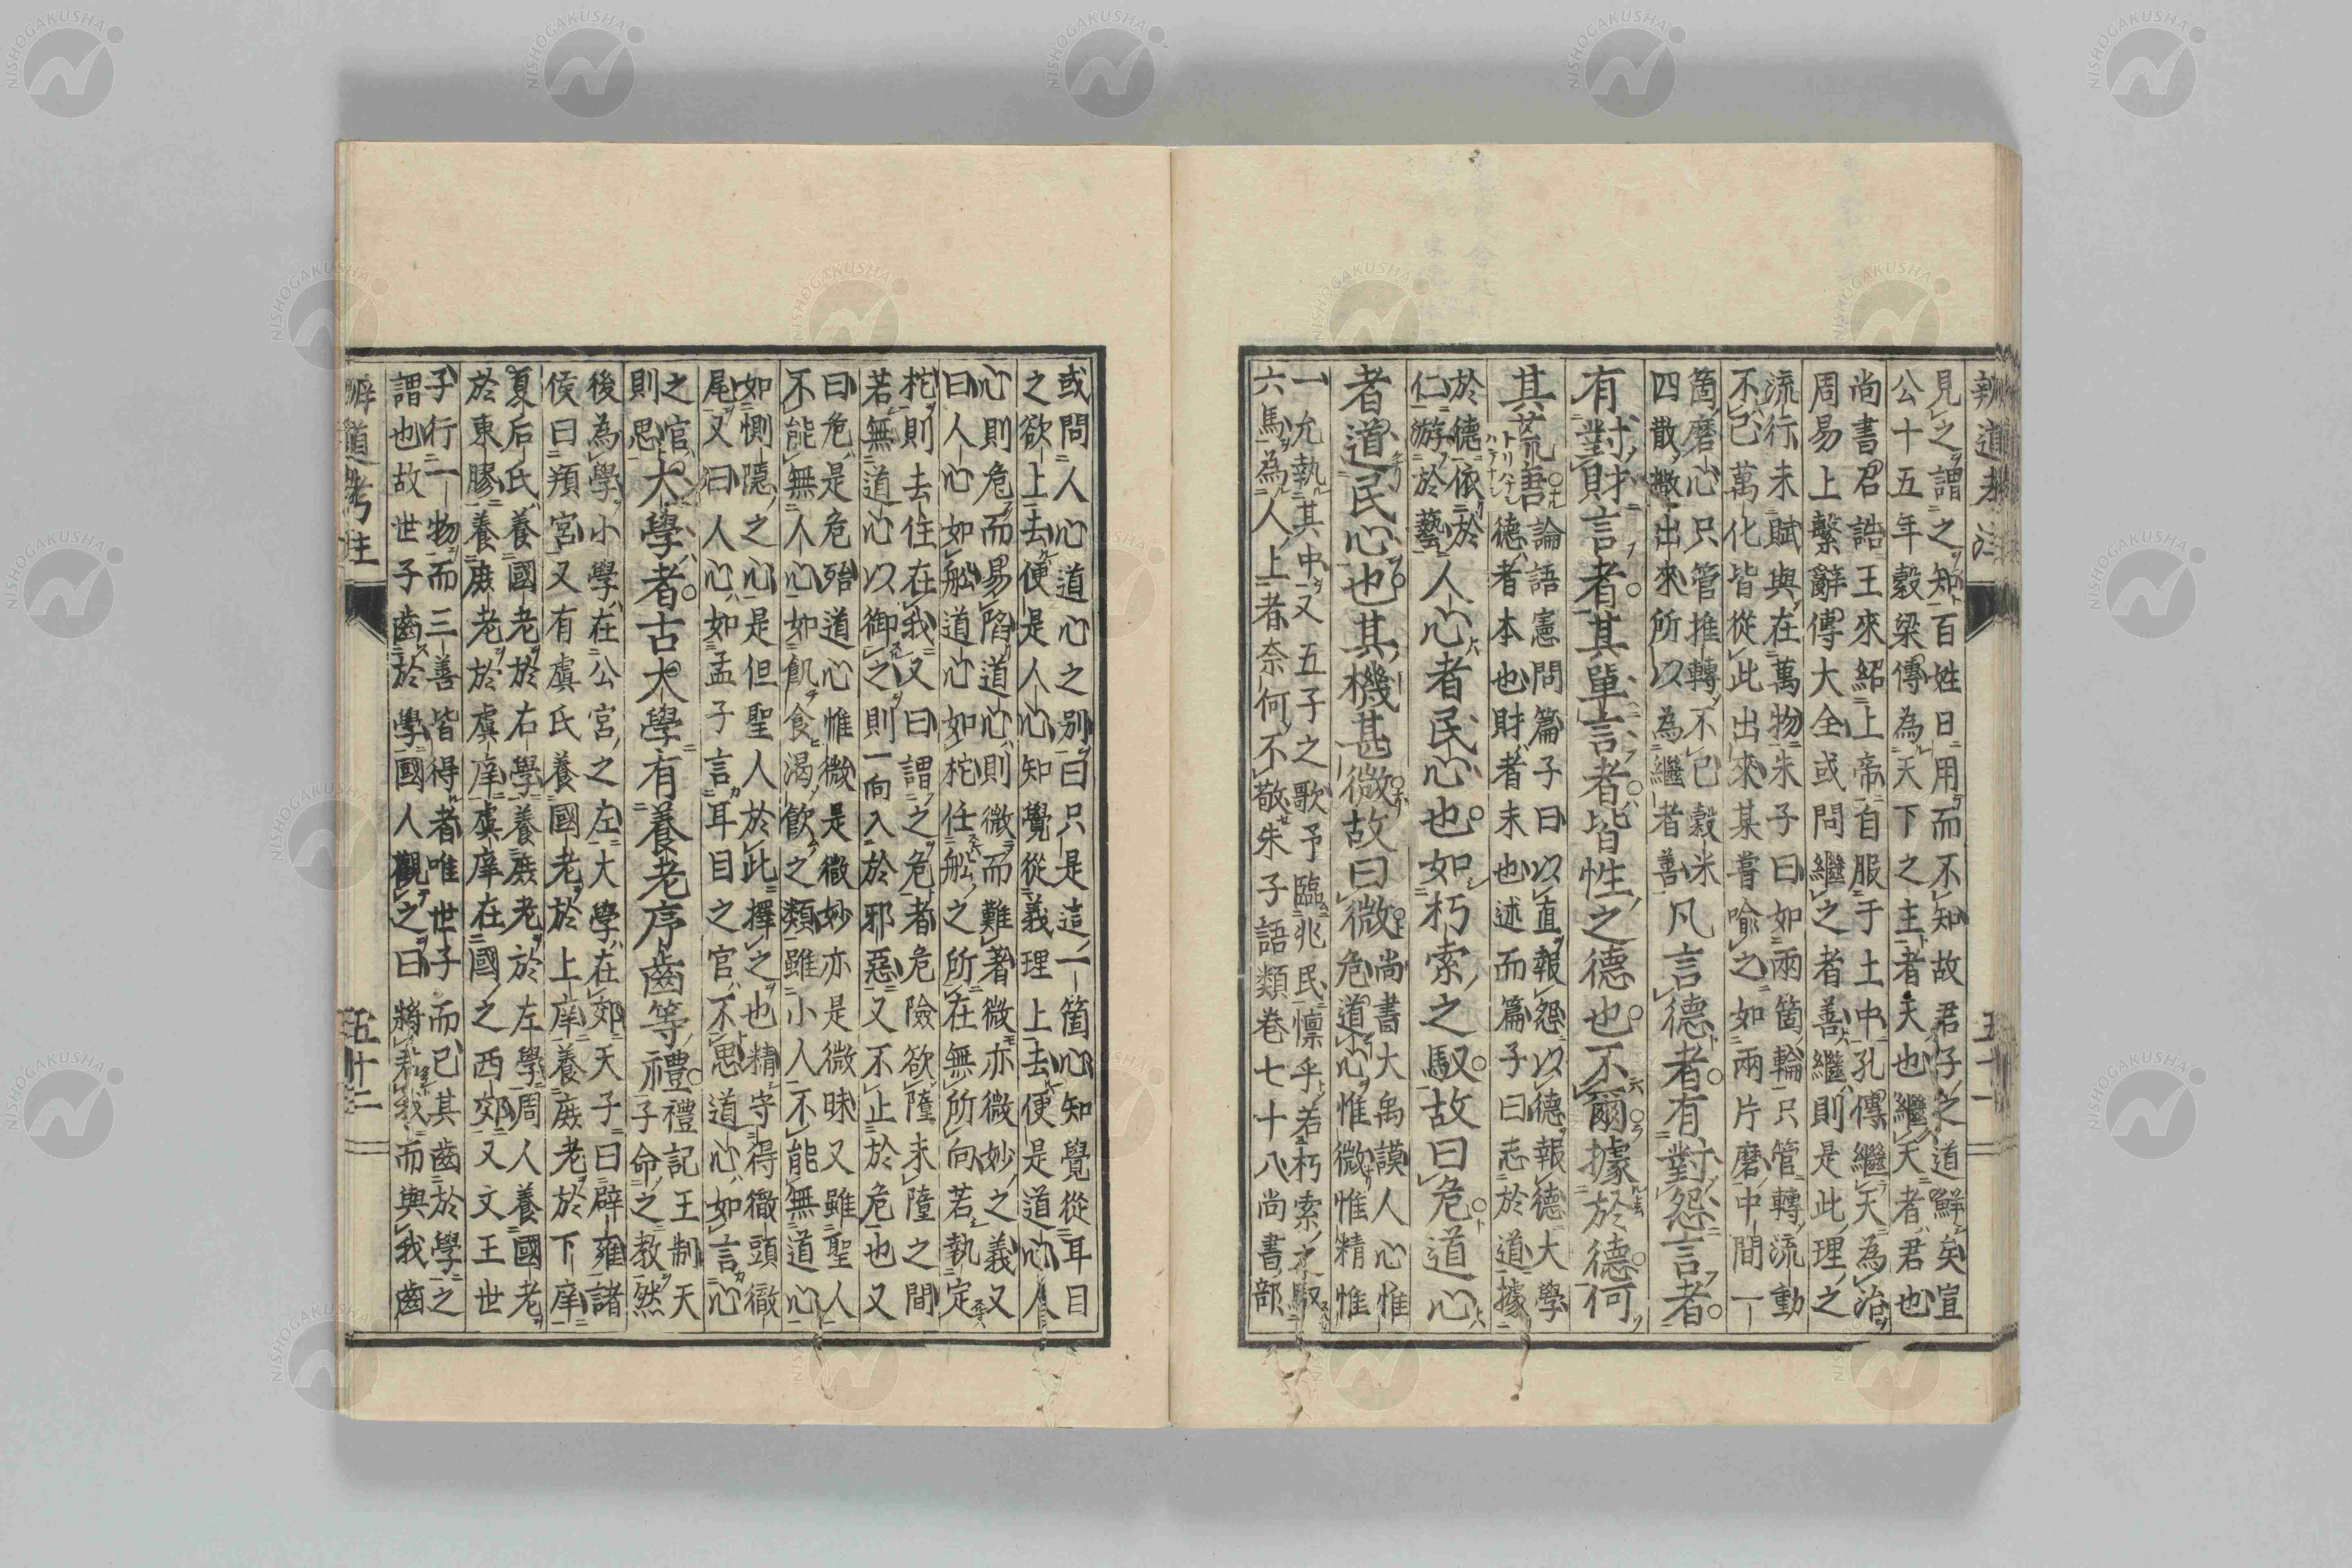 辨道考注 五十一
見之謂之知百姓日用而不知故君子之道鮮矣宣
公十五年穀梁傳為天下之主者天也繼天者君也
尚書召誥王來紹上帝自服于土中孔傳繼天為治
周易上繫辭傳大全或問繼之者善繼則是此理之
流行未賦與在萬物朱子曰如兩箇輪只管轉流動
不已萬化皆從此出來某嘗喻之如兩片磨中間一
箇磨心只管推轉不已穀米
四散撒出來所以為繼者善
凡言德者有對怨言者
有對財言者其單言者皆性之德也不爾據於德何
其荒唐
論語憲問篇子曰以直報怨以德報德大學
德者本也財者末也述而篇子曰志於道據
於德依於
仁游於藝
人心者民心也如朽索之馭故曰危道心
者道民心也其機甚微故曰微
尚書大禹謨人心惟
危道心惟微惟精惟
一允執其中又五子之歌予臨兆民懍乎若朽索之馭
六馬為人上者奈何不敬朱子語類卷七十八尚書部
或問人心道心之別曰只是這一箇心知覺從耳目
之欲上去便是人心知覺從義理上去便是道心人
心則危而易陷道心則微而難著微亦微妙之義又
曰人心如船道心如柁任船之所在無所向若執定
柁則去住在我又曰謂之危者危險欲墮未墮之間
若無道心以御之則一向入於邪惡又不止於危也又
曰危是危殆道心惟微是微妙亦是微昧又雖聖人
不能無人心如飢食渴飲之類雖小人不能無道心
如惻隱之心是但聖人於此擇之也精守得徹頭徹
尾又曰人心如孟子言耳目之官不思道心如言心
之官
則思
大學者古大學有養老序齒等禮
禮記王制天
子命之教然
後為學小學在公宮之左大學在郊天子曰辟雍諸
侯曰頖宮又有虞氏養國老於上庠養庶老於下庠
夏后氏養國老於右學養庶老於左學周人養國老
於東膠養庶老於虞庠虞庠在國之西郊又文王世
子行一物而三善皆得者唯世子而已其齒於學之
謂也故世子齒於學國人觀之曰將君我而與我齒
辨道考注 五十二